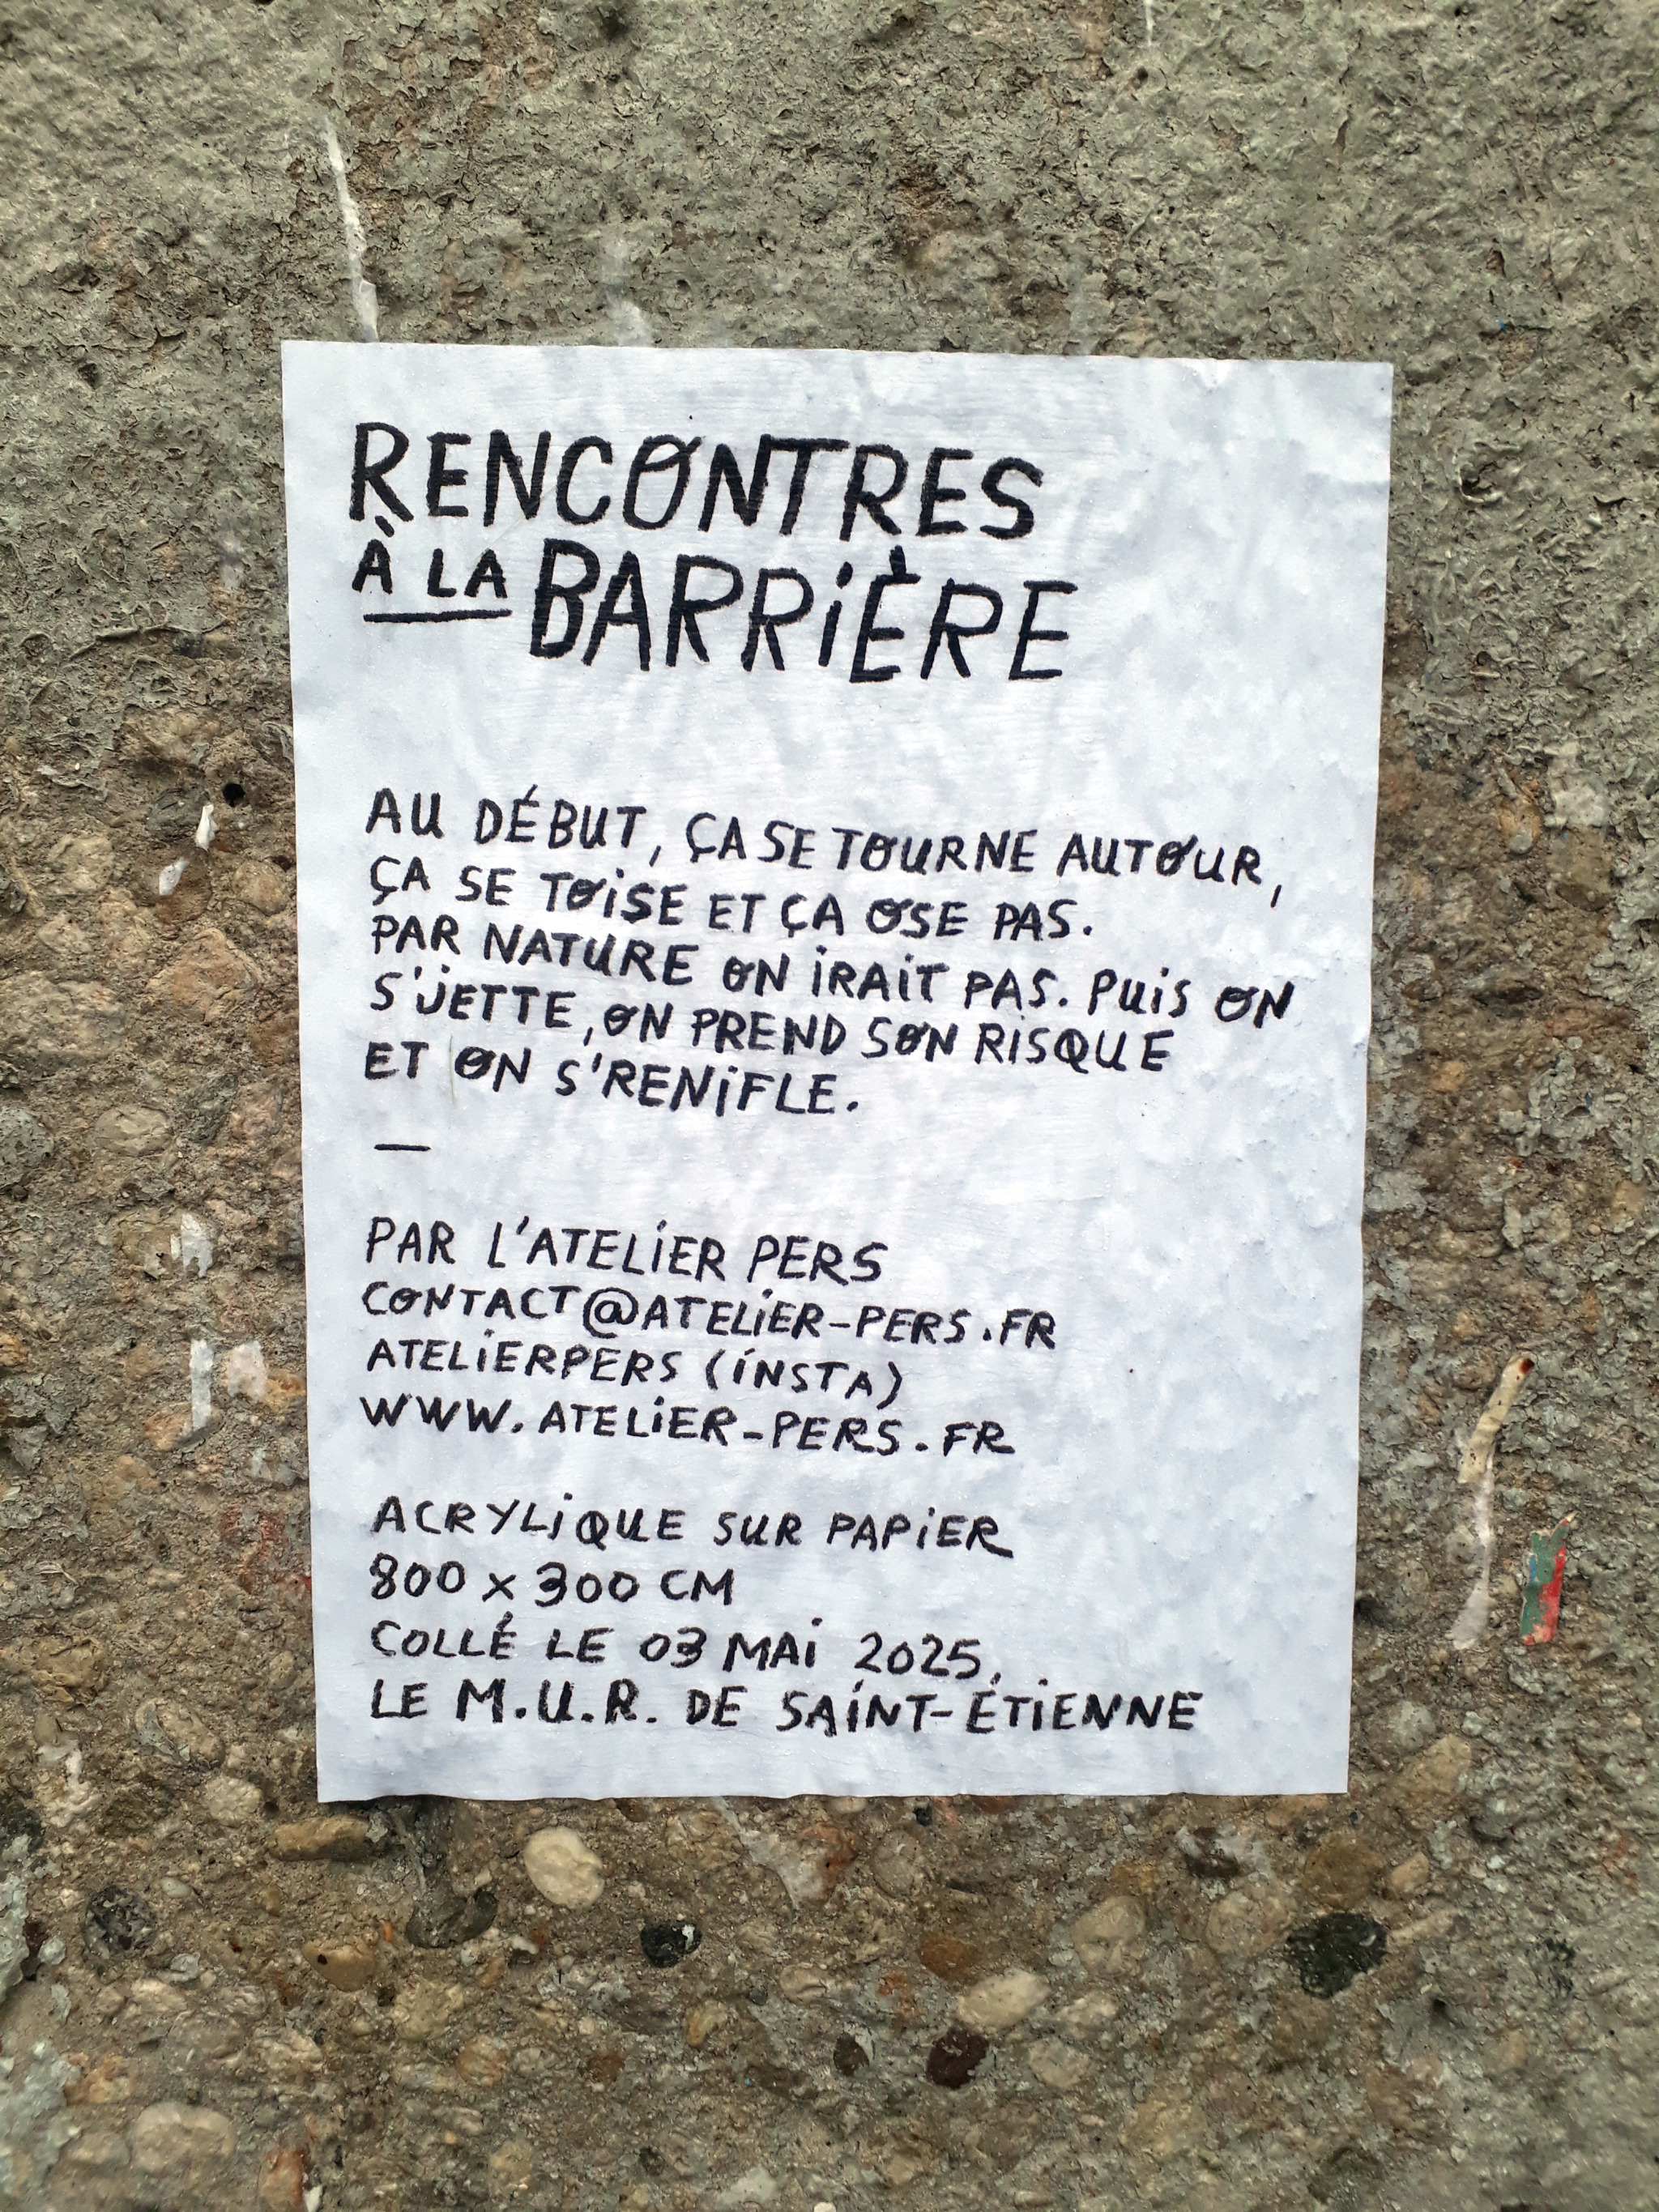 RENCONTRES
À LA BARRIÈRE
AU DÉBUT, ÇA SE TOURNE AUTOUR,
ÇA SE TOISE ET ÇA OSE PAS.
PAR NATURE ON IRAIT PAS. PUIS ON
S'JETTE, ON PREND SON RISQUE
ET ON S'RENIFLE.
—
PAR L'ATELIER PERS
CONTACT@ATELIER-PERS.FR
ATELIERPERS (INSTA)
WWW.ATELIER-PERS.FR
ACRYLIQUE SUR PAPIER
800 x 300 CM
COLLÉ LE 03 MAI 2025,
LE M.U.R. DE SAINT-ÉTIENNE